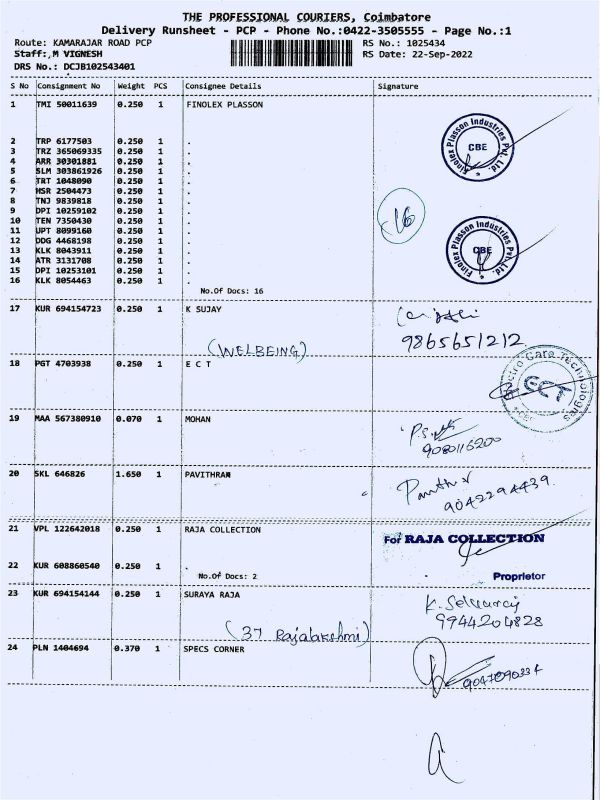 THE PROFESSIONAL COURIERS, Coimbatore
Delivery Runsheet - PCP - Phone No.:0422-3505555 - Page No.:1
Route: KAMARAJAR ROAD PCP RS No.: 1025434
Staff:,M VIGNESH RS Date: 22-Sep-2022
DRS No.: DCJB102543401
S No Consignment No Weight PCS Consignee Details Signature
1 TMI 50011639 0.250 1 FINOLEX PLASSON
Finolex Plasson Industries Pvt. Ltd. CBE
2 TRP 6177503 0.250 1 .
3 TRZ 365069335 0.250 1 .
4 ARR 30301881 0.250 1 .
5 SLM 303861926 0.250 1 .
6 TRT 1048090 0.250 1 .
7 MSR 2504473 0.250 1 .
8 TNJ 9839818 0.250 1 .
9 DPI 10259102 0.250 1 .
10 TEN 7350430 0.250 1 .
11 UPT 8099160 0.250 1 .
12 DDG 4468198 0.250 1 .
13 KLK 8043911 0.250 1 .
14 ATR 3131708 0.250 1 .
15 DPI 10253101 0.250 1 .
16 KLK 8054463 0.250 1 .
16
Finolex Plasson Industries Pvt. Ltd. CBE
No.Of Docs: 16
17 KUR 694154723 0.250 1 K SUJAY
(WELBEING) 9865651212
18 PGT 4703938 0.250 1 E C T
Electro Care Technologies ECT CBE
19 MAA 567380910 0.070 1 MOHAN
9080116200
20 SKL 646826 1.650 1 PAVITHRAN
9042294439.
21 VPL 122642018 0.250 1 RAJA COLLECTION
For RAJA COLLECTION
22 KUR 608860540 0.250 1 .
No.Of Docs: 2 Proprietor
23 KUR 694154144 0.250 1 SURAYA RAJA
K. Selvaraj
9944204828
(37 Rajalakshmi)
24 PLN 1404694 0.370 1 SPECS CORNER